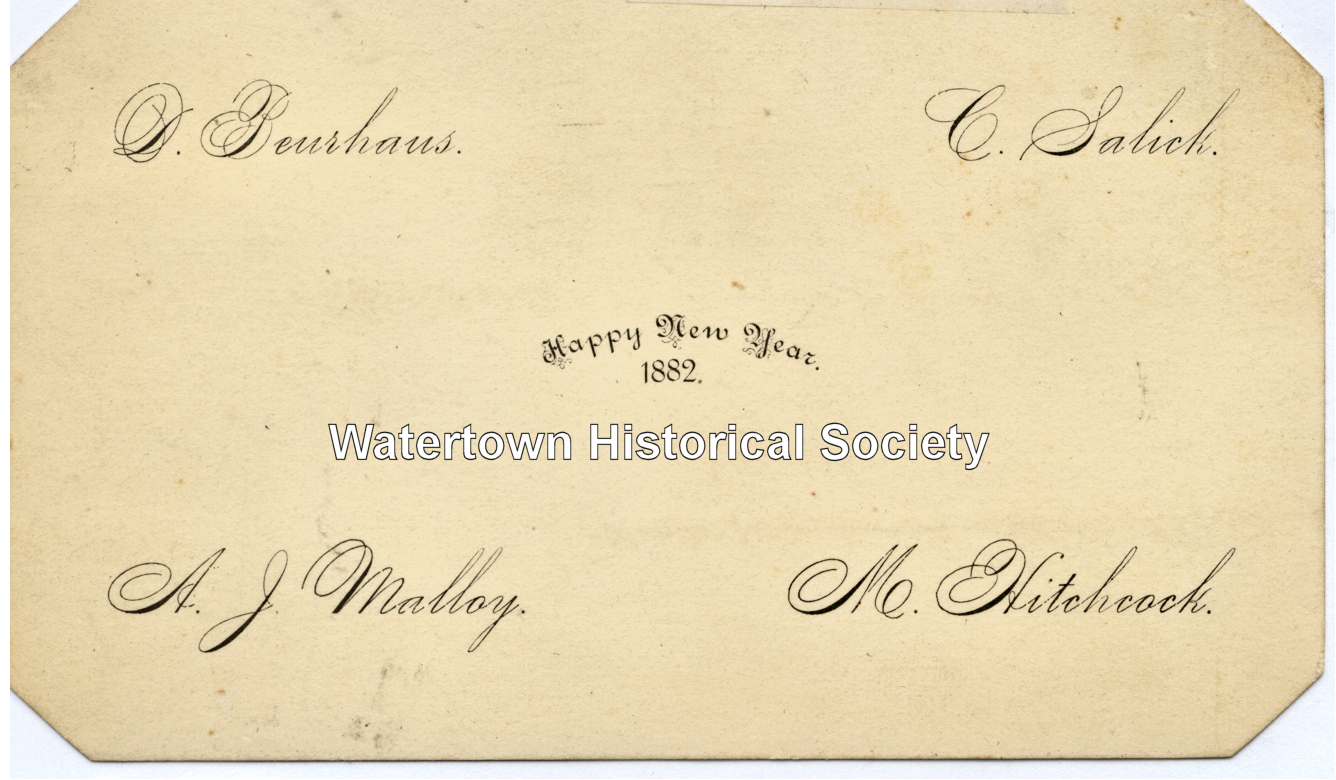 D. Beurhaus.
C. Salick.
Happy New Year.
1882.
Watertown Historical Society
A. J. Malloy.
M. Hitchcock.